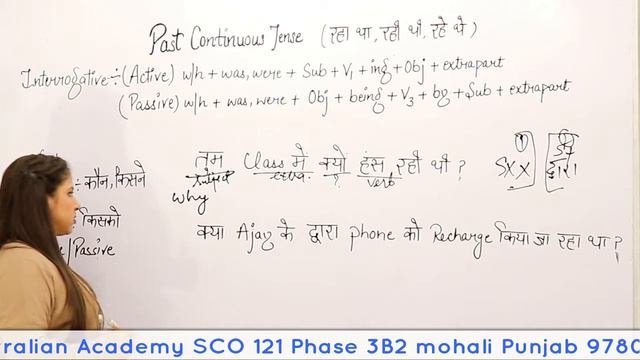 Past Continuous Tense (रहा था, रही थी, रहे थे)
Interrogative :- (Active) w/h + was, were + Sub + V₁ + ing + Obj + extrapart
(Passive) w/h + was, were + Obj + being + V₃ + by + Sub + extrapart
÷ कौन, किसने
किसको
/Passive
तुम Class में क्यों हंस रही थी ?
Subject extra. ? verb
why
① SXX
द्वारा
क्या Ajay के द्वारा phone को Recharge किया जा रहा था ?
ralian Academy SCO 121 Phase 3B2 mohali Punjab 9780